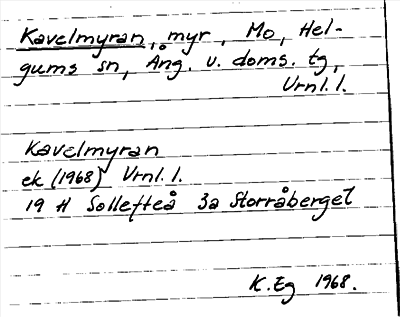 Kavelmyran, myr, Mo, Hel-
gums sn, Ång. v. doms. tg,
Vrnl. l.
Kavelmyran
ek (1968) Vrnl. l.
19 H Sollefteå 3a Storråberget
K. Eg 1968.